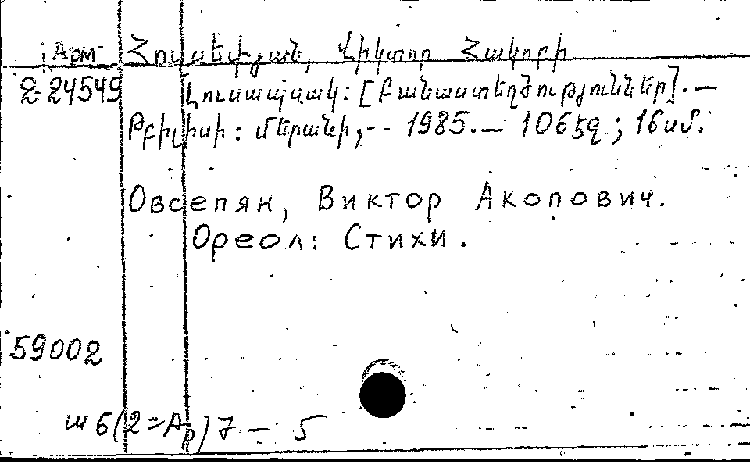 Арм Հովսեփյան, Վիկտոր Հակոբի
2-24549 Լուսապսակ: [Բանաստեղծություններ].—
Թբիլիսի: Մերանի,-- 1985.— 106 էջ; 16 սմ.
Овсепян, Виктор Акопович.
Ореол: Стихи.
59002
ш6(2=Ар)7 — 5